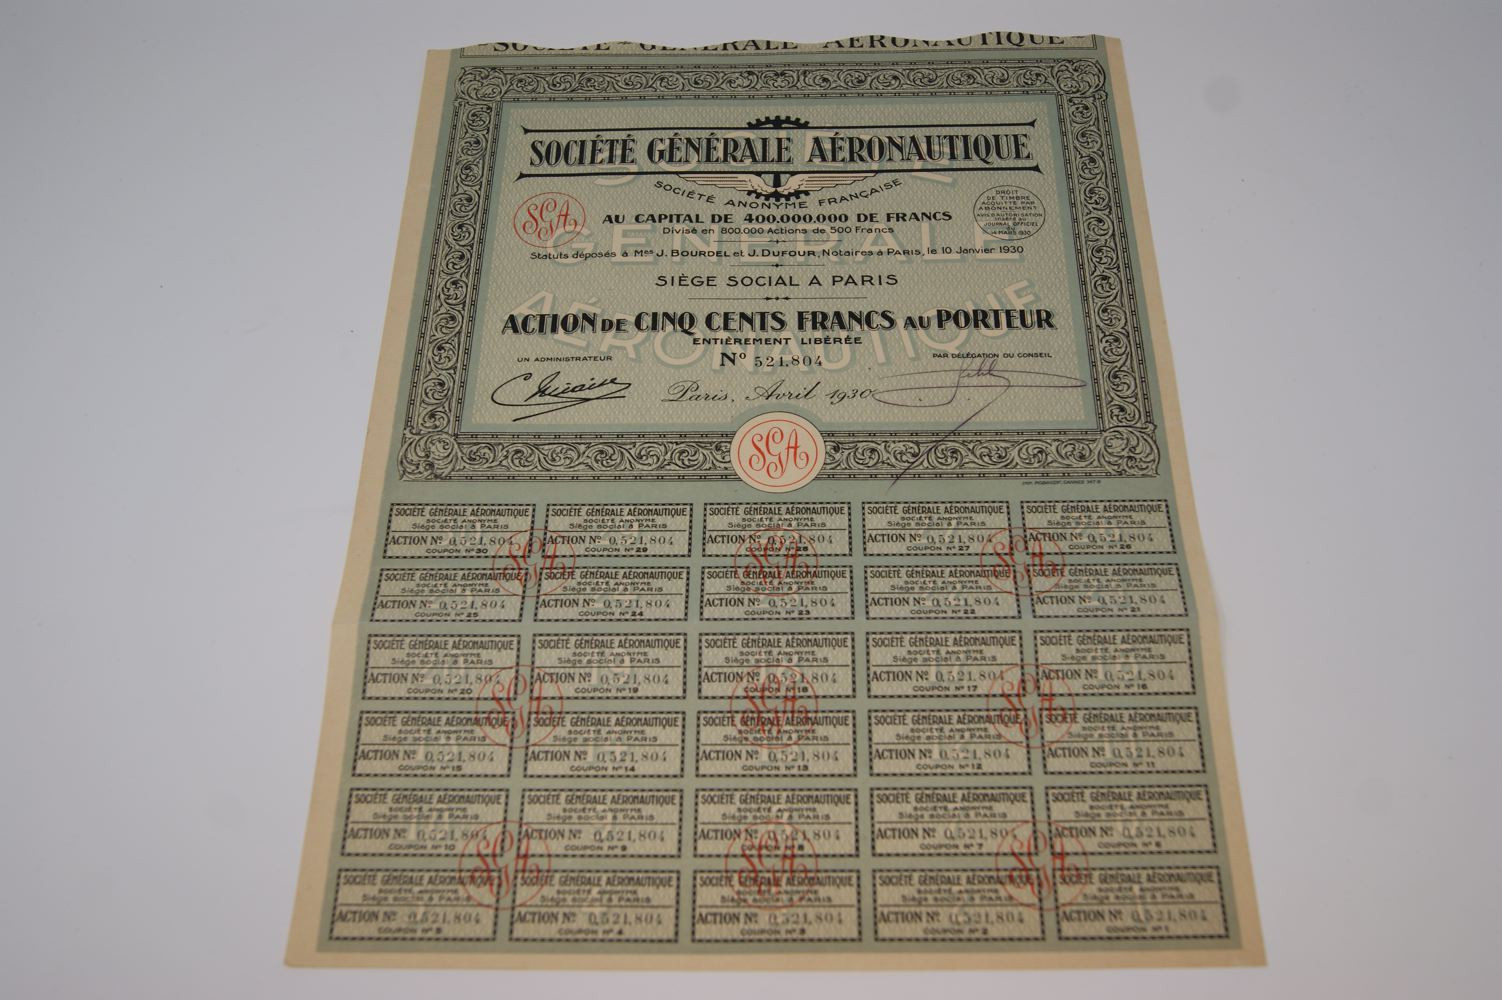 SOCIÉTÉ GÉNÉRALE AÉRONAUTIQUE
SOCIÉTÉ GÉNÉRALE AÉRONAUTIQUE
SOCIÉTÉ ANONYME FRANÇAISE
SGA
AU CAPITAL DE 400.000.000 DE FRANCS
Divisé en 800.000 Actions de 500 Francs
DROIT
DE TIMBRE
ACQUITTÉ PAR
ABONNEMENT
AVIS D'AUTORISATION
INSÉRÉ AU
JOURNAL OFFICIEL
DU
14 MARS 1930
Statuts déposés à Mes J. BOURDEL et J. DUFOUR, Notaires à PARIS, le 10 Janvier 1930
SIÈGE SOCIAL A PARIS
ACTION DE CINQ CENTS FRANCS AU PORTEUR
ENTIÈREMENT LIBÉRÉE
No 521,804
UN ADMINISTRATEUR
PAR DÉLÉGATION DU CONSEIL
Paris, Avril 1930
SGA
SOCIÉTÉ GÉNÉRALE AÉRONAUTIQUE
SOCIÉTÉ GÉNÉRALE AÉRONAUTIQUE SOCIÉTÉ GÉNÉRALE AÉRONAUTIQUE SOCIÉTÉ GÉNÉRALE AÉRONAUTIQUE SOCIÉTÉ GÉNÉRALE AÉRONAUTIQUE SOCIÉTÉ GÉNÉRALE AÉRONAUTIQUE
SOCIÉTÉ ANONYME SOCIÉTÉ ANONYME SOCIÉTÉ ANONYME SOCIÉTÉ ANONYME SOCIÉTÉ ANONYME
Siège social à PARIS Siège social à PARIS Siège social à PARIS Siège social à PARIS Siège social à PARIS
ACTION No 0,521,804 ACTION No 0,521,804 ACTION No 0,521,804 ACTION No 0,521,804 ACTION No 0,521,804
COUPON No 30 COUPON No 29 COUPON No 28 COUPON No 27 COUPON No 26
SOCIÉTÉ GÉNÉRALE AÉRONAUTIQUE SOCIÉTÉ GÉNÉRALE AÉRONAUTIQUE SOCIÉTÉ GÉNÉRALE AÉRONAUTIQUE SOCIÉTÉ GÉNÉRALE AÉRONAUTIQUE SOCIÉTÉ GÉNÉRALE AÉRONAUTIQUE
SOCIÉTÉ ANONYME SOCIÉTÉ ANONYME SOCIÉTÉ ANONYME SOCIÉTÉ ANONYME SOCIÉTÉ ANONYME
Siège social à PARIS Siège social à PARIS Siège social à PARIS Siège social à PARIS Siège social à PARIS
ACTION No 0,521,804 ACTION No 0,521,804 ACTION No 0,521,804 ACTION No 0,521,804 ACTION No 0,521,804
COUPON No 25 COUPON No 24 COUPON No 23 COUPON No 22 COUPON No 21
SOCIÉTÉ GÉNÉRALE AÉRONAUTIQUE SOCIÉTÉ GÉNÉRALE AÉRONAUTIQUE SOCIÉTÉ GÉNÉRALE AÉRONAUTIQUE SOCIÉTÉ GÉNÉRALE AÉRONAUTIQUE SOCIÉTÉ GÉNÉRALE AÉRONAUTIQUE
SOCIÉTÉ ANONYME SOCIÉTÉ ANONYME SOCIÉTÉ ANONYME SOCIÉTÉ ANONYME SOCIÉTÉ ANONYME
Siège social à PARIS Siège social à PARIS Siège social à PARIS Siège social à PARIS Siège social à PARIS
ACTION No 0,521,804 ACTION No 0,521,804 ACTION No 0,521,804 ACTION No 0,521,804 ACTION No 0,521,804
COUPON No 20 COUPON No 19 COUPON No 18 COUPON No 17 COUPON No 16
SOCIÉTÉ GÉNÉRALE AÉRONAUTIQUE SOCIÉTÉ GÉNÉRALE AÉRONAUTIQUE SOCIÉTÉ GÉNÉRALE AÉRONAUTIQUE SOCIÉTÉ GÉNÉRALE AÉRONAUTIQUE SOCIÉTÉ GÉNÉRALE AÉRONAUTIQUE
SOCIÉTÉ ANONYME SOCIÉTÉ ANONYME SOCIÉTÉ ANONYME SOCIÉTÉ ANONYME SOCIÉTÉ ANONYME
Siège social à PARIS Siège social à PARIS Siège social à PARIS Siège social à PARIS Siège social à PARIS
ACTION No 0,521,804 ACTION No 0,521,804 ACTION No 0,521,804 ACTION No 0,521,804 ACTION No 0,521,804
COUPON No 15 COUPON No 14 COUPON No 13 COUPON No 12 COUPON No 11
SOCIÉTÉ GÉNÉRALE AÉRONAUTIQUE SOCIÉTÉ GÉNÉRALE AÉRONAUTIQUE SOCIÉTÉ GÉNÉRALE AÉRONAUTIQUE SOCIÉTÉ GÉNÉRALE AÉRONAUTIQUE SOCIÉTÉ GÉNÉRALE AÉRONAUTIQUE
SOCIÉTÉ ANONYME SOCIÉTÉ ANONYME SOCIÉTÉ ANONYME SOCIÉTÉ ANONYME SOCIÉTÉ ANONYME
Siège social à PARIS Siège social à PARIS Siège social à PARIS Siège social à PARIS Siège social à PARIS
ACTION No 0,521,804 ACTION No 0,521,804 ACTION No 0,521,804 ACTION No 0,521,804 ACTION No 0,521,804
COUPON No 10 COUPON No 9 COUPON No 8 COUPON No 7 COUPON No 6
SOCIÉTÉ GÉNÉRALE AÉRONAUTIQUE SOCIÉTÉ GÉNÉRALE AÉRONAUTIQUE SOCIÉTÉ GÉNÉRALE AÉRONAUTIQUE SOCIÉTÉ GÉNÉRALE AÉRONAUTIQUE SOCIÉTÉ GÉNÉRALE AÉRONAUTIQUE
SOCIÉTÉ ANONYME SOCIÉTÉ ANONYME SOCIÉTÉ ANONYME SOCIÉTÉ ANONYME SOCIÉTÉ ANONYME
Siège social à PARIS Siège social à PARIS Siège social à PARIS Siège social à PARIS Siège social à PARIS
ACTION No 0,521,804 ACTION No 0,521,804 ACTION No 0,521,804 ACTION No 0,521,804 ACTION No 0,521,804
COUPON No 5 COUPON No 4 COUPON No 3 COUPON No 2 COUPON No 1